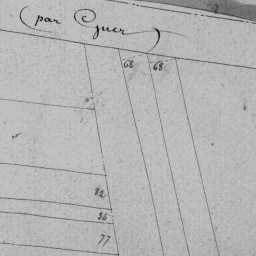 (par Guer)
68 68
92
26
77